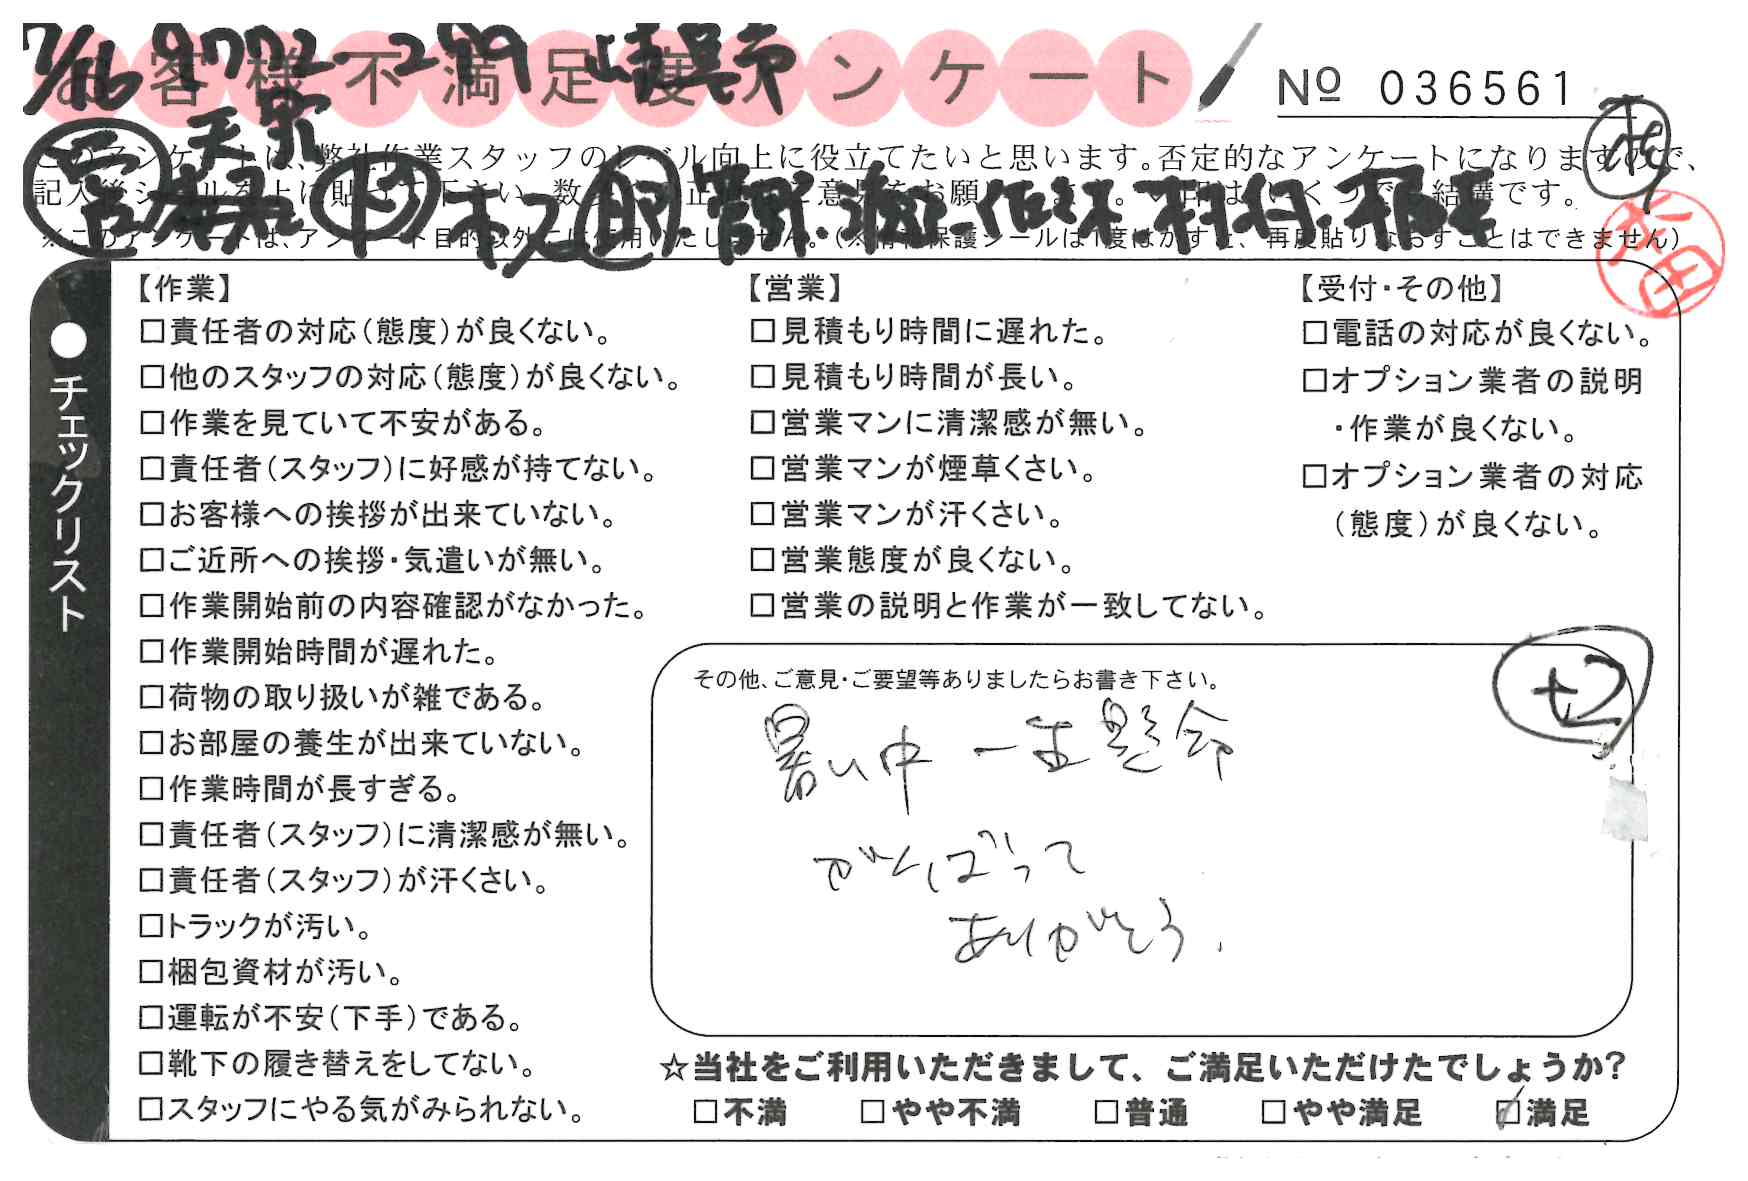 7/16
お客様不満足度アンケート
No 036561
このアンケートは、弊社作業スタッフのレベル向上に役立てたいと思います。否定的なアンケートになりますので、
記入後シールを上に貼って下さい。
※このアンケートは、アンケート目的以外には使用いたしません。(※情報保護シールは1度はがすと、再度貼りなおすことはできません)
チェックリスト
【作業】
□責任者の対応(態度)が良くない。
□他のスタッフの対応(態度)が良くない。
□作業を見ていて不安がある。
□責任者(スタッフ)に好感が持てない。
□お客様への挨拶が出来ていない。
□ご近所への挨拶・気遣いが無い。
□作業開始前の内容確認がなかった。
□作業開始時間が遅れた。
□荷物の取り扱いが雑である。
□お部屋の養生が出来ていない。
□作業時間が長すぎる。
□責任者(スタッフ)に清潔感が無い。
□責任者(スタッフ)が汗くさい。
□トラックが汚い。
□梱包資材が汚い。
□運転が不安(下手)である。
□靴下の履き替えをしてない。
□スタッフにやる気がみられない。
【営業】
□見積もり時間に遅れた。
□見積もり時間が長い。
□営業マンに清潔感が無い。
□営業マンが煙草くさい。
□営業マンが汗くさい。
□営業態度が良くない。
□営業の説明と作業が一致してない。
【受付・その他】
□電話の対応が良くない。
□オプション業者の説明
・作業が良くない。
□オプション業者の対応
(態度)が良くない。
その他、ご意見・ご要望等ありましたらお書き下さい。
+2
暑い中 一生懸命
がんばって
ありがとう.
☆当社をご利用いただきまして、ご満足いただけたでしょうか?
□不満 □やや不満 □普通 □やや満足 ☑満足